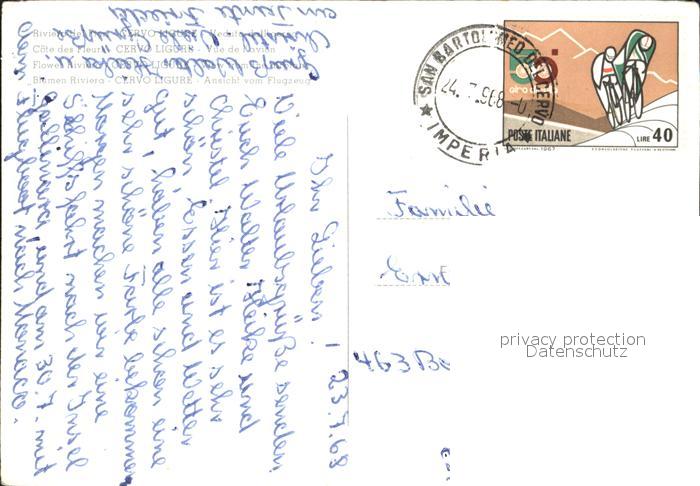 Riviera dei Fiori - CERVO LIGURE - Veduta
Côte des Fleurs - CERVO LIGURE - Vue de l'avion
Riviera CERVO LIGURE
Blumen Riviera - CERVO LIGURE - Ansicht vom Flugzeug
23.7.68
Ihr Lieben!
Viele Urlaubsgrüße senden
Euch Walter, Heike und
Christel. Hier ist es sehr
schön. Essen und Wetter
gut, haben alle schon eine
sehr schöne Farbe bekommen.
Morgen machen wir eine
Schiffsfahrt nach der Insel
Gallinara und am 30.7. mit
dem Flugboot nach Monaco.
Gruß Walter
Christel Heike
an Tante Frieda
SAN BARTOLOMEO DEL CERVO
24.7.968
★ IMPERIA ★
50
giro d'
POSTE ITALIANE
LIRE 40
1967
Familie
463 Bo
privacy protection
Datenschutz